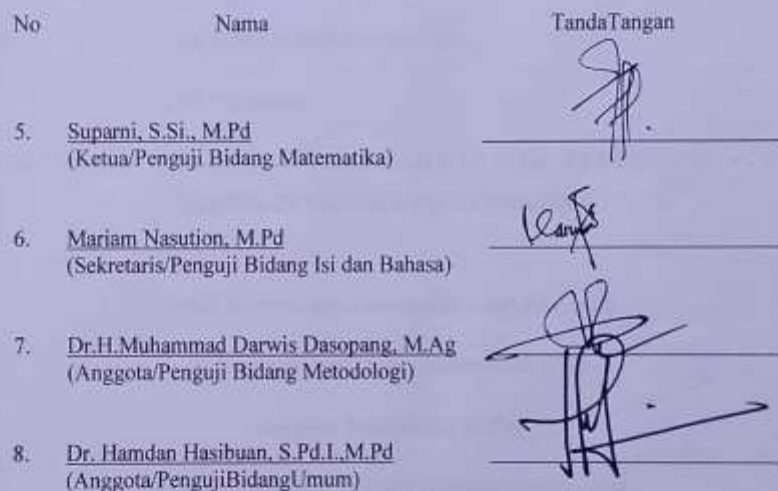 No Nama TandaTangan
5. Suparni, S.Si., M.Pd
(Ketua/Penguji Bidang Matematika)
6. Mariam Nasution, M.Pd
(Sekretaris/Penguji Bidang Isi dan Bahasa)
7. Dr.H.Muhammad Darwis Dasopang, M.Ag
(Anggota/Penguji Bidang Metodologi)
8. Dr. Hamdan Hasibuan, S.Pd.I.,M.Pd
(Anggota/PengujiBidangUmum)